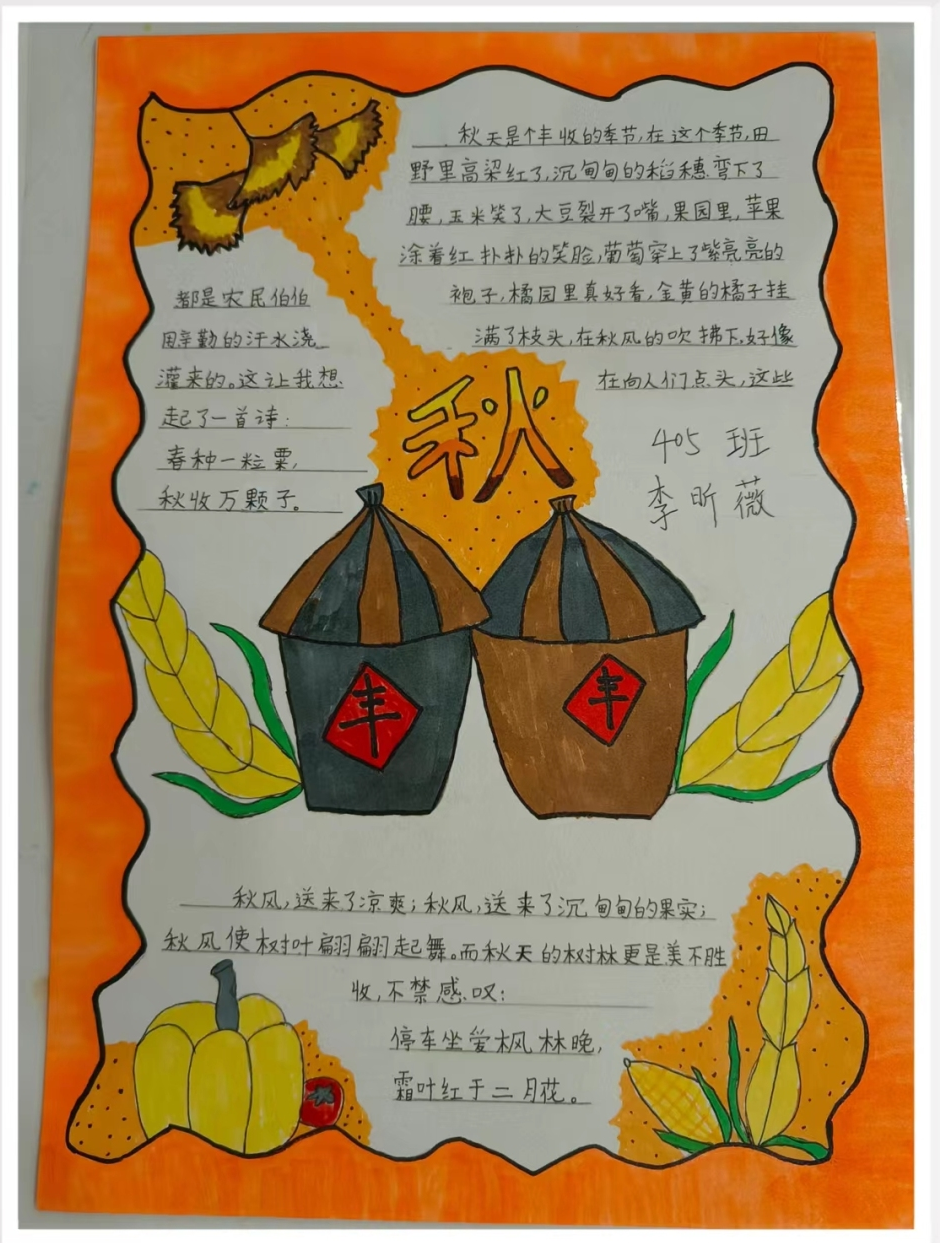 秋天是个丰收的季节,在这个季节,田
野里高梁红了,沉甸甸的稻穗弯下了
腰,玉米笑了,大豆裂开了嘴,果园里,苹果
涂着红扑扑的笑脸,葡萄穿上了紫亮亮的
袍子,橘园里真好看,金黄的橘子挂
满了枝头,在秋风的吹拂下,好像
在向人们点头,这些
都是农民伯伯
用辛勤的汗水浇
灌来的。这让我想
起了一首诗:
春种一粒粟,
秋收万颗子。
秋
405班
李昕薇
丰
丰
秋风,送来了凉爽;秋风,送来了沉甸甸的果实;
秋风使树叶翩翩起舞。而秋天的树林更是美不胜
收,不禁感叹:
停车坐爱枫林晚,
霜叶红于二月花。